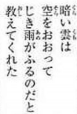 暗い雲は
空をおおって
じき雨がふるのだと
教えてくれた